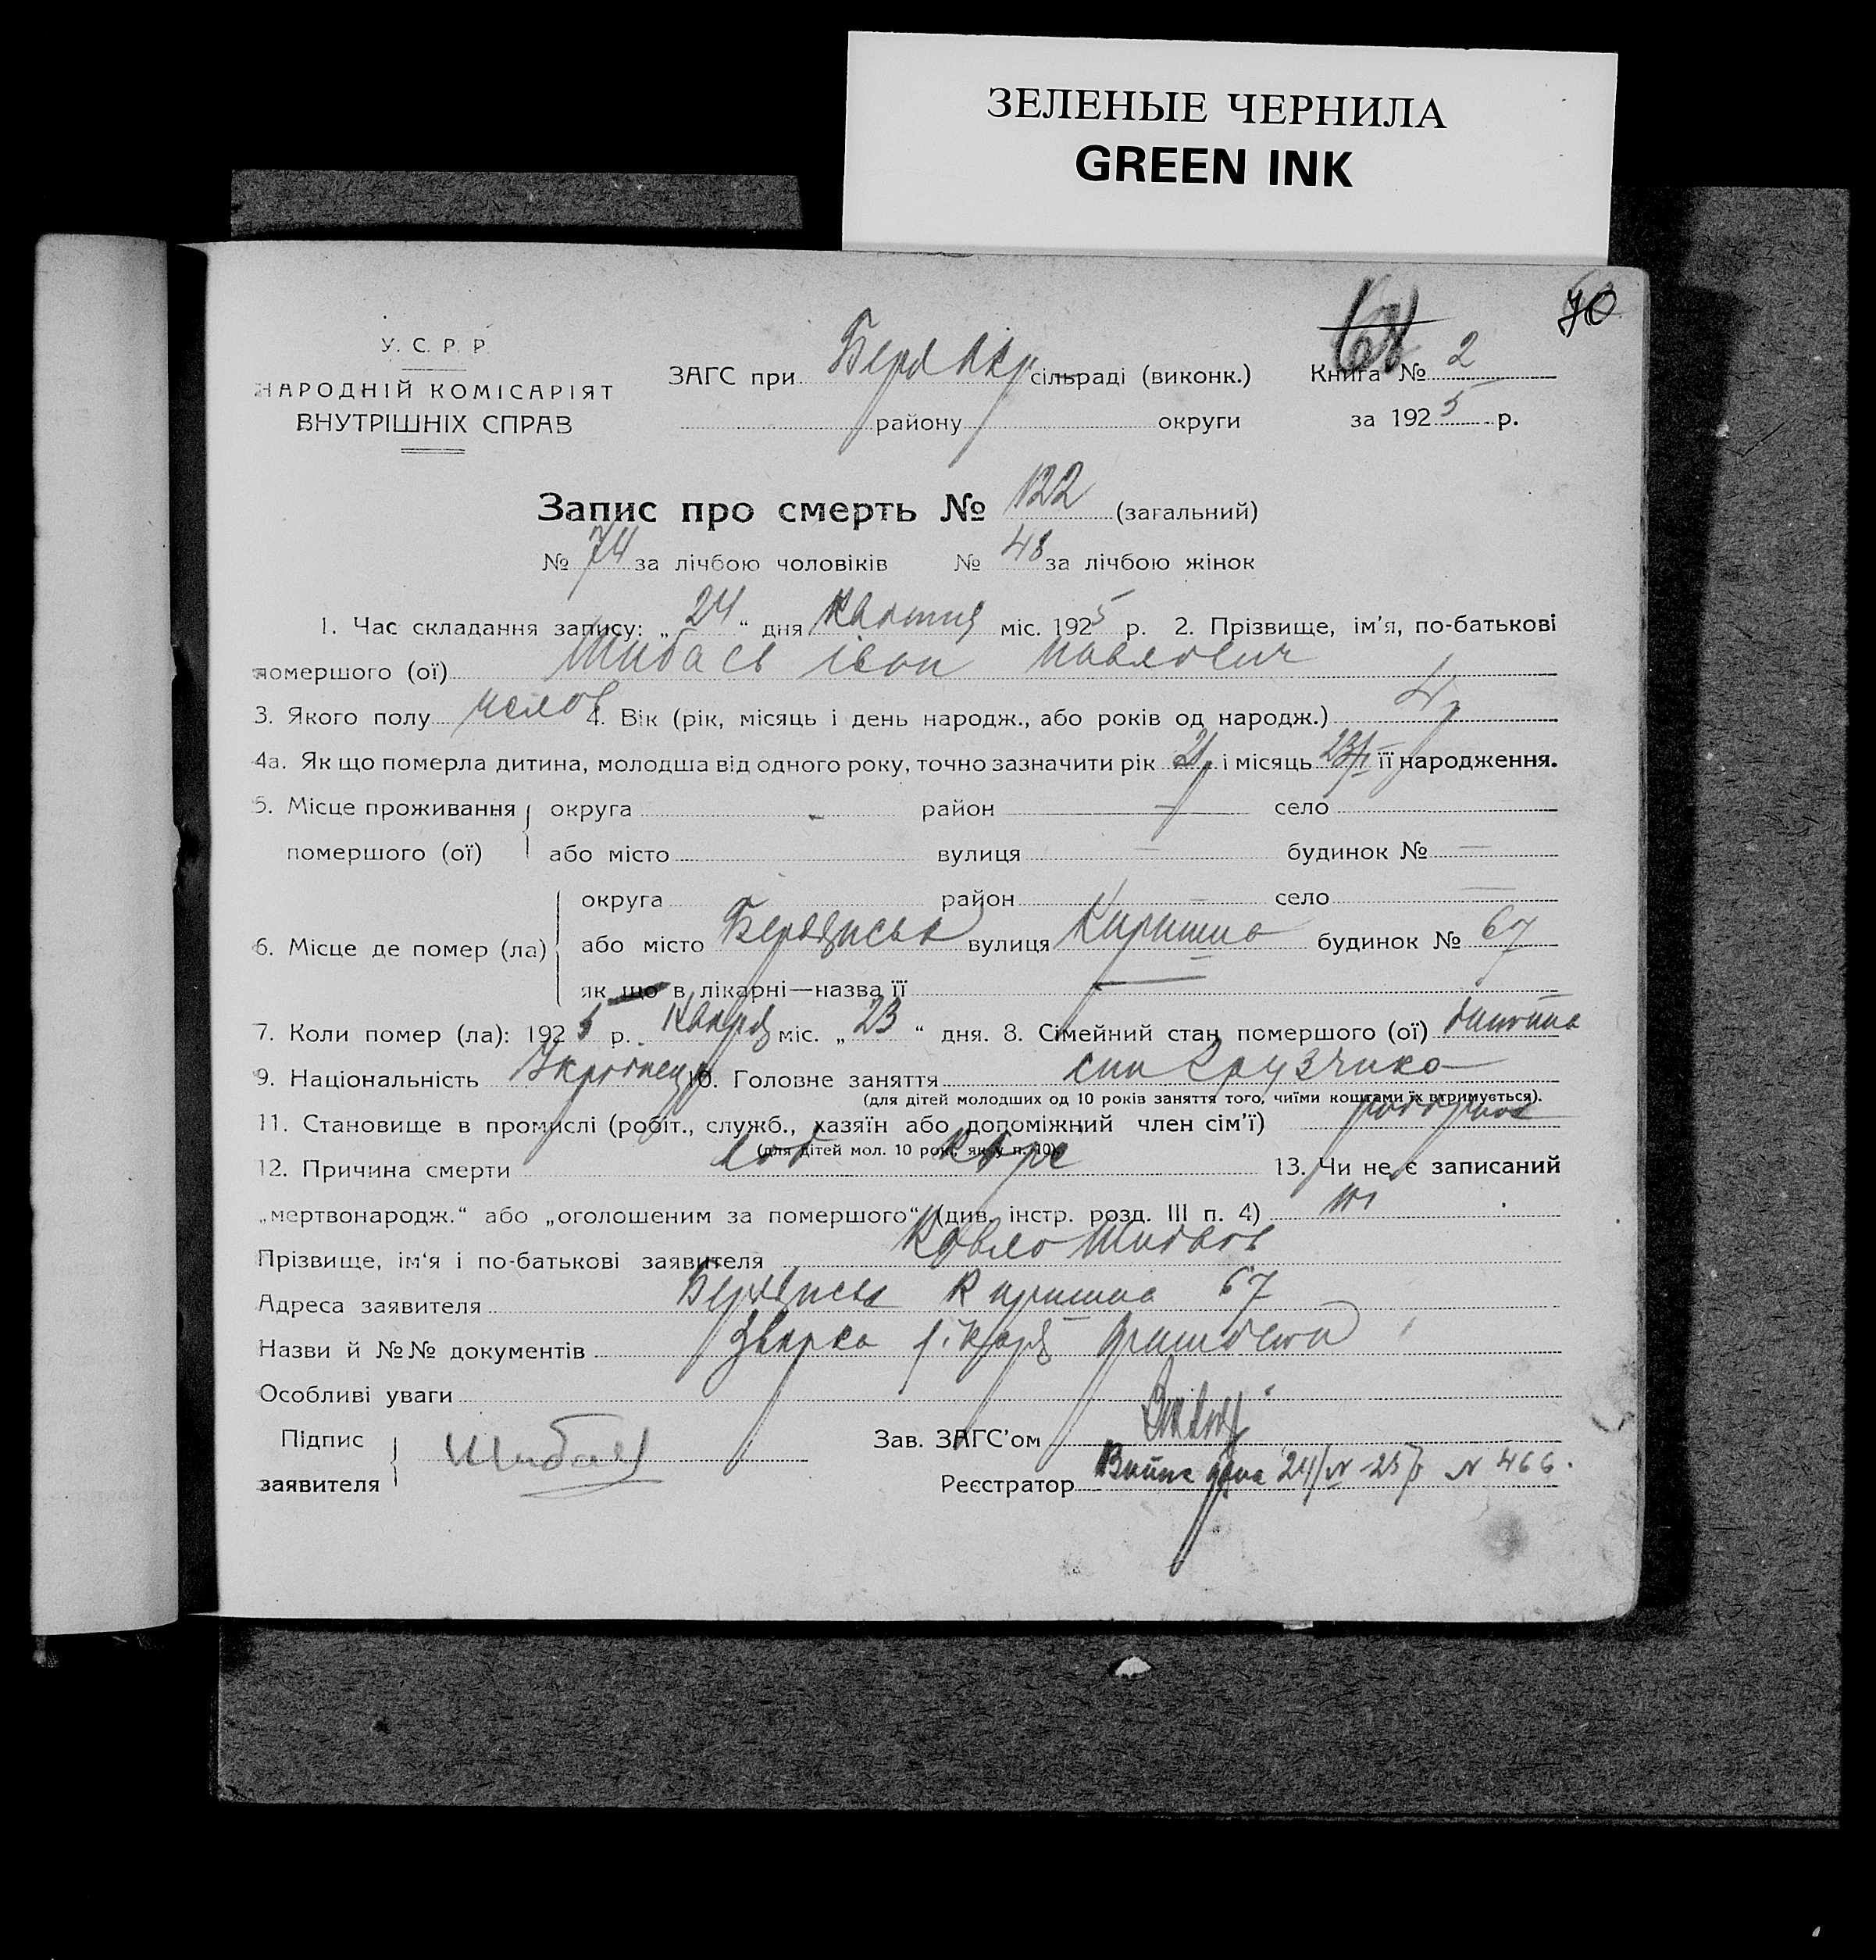 ЗЕЛЕНЫЕ ЧЕРНИЛА
GREEN INK
70
У. С. Р. Р.
НАРОДНІЙ КОМІСАРІЯТ
ВНУТРІШНІХ СПРАВ
ЗАГС при сільраді (виконк.) Книга № 2
району округи за 1925 р.
Запис про смерть № 122 (загальний)
№ 74 за лічбою чоловіків № 48 за лічбою жінок
1. Час складання запису: „ 24 “ дня квітня міс. 1925 р. 2. Прізвище, ім'я, по-батькові
помершого (ої) Шибаєв Іван Павлович
3. Якого полу челов 4. Вік (рік, місяць і день народж., або років од народж.) 4 р
4а. Як що померла дитина, молодша від одного року, точно зазначити рік 21 р. і місяць її народження.
5. Місце проживання округа — район — село
помершого (ої) або місто вулиця — будинок № —
округа район — село —
6. Місце де помер (ла) або місто Бердянськ вулиця будинок № 67
як що в лікарні—назва її —
7. Коли помер (ла): 1925 р. Квітня міс. „ 23 “ дня. 8. Сімейний стан помершого (ої) дитина
9. Національність Українець 10. Головне заняття син грузчика
(для дітей молодших од 10 років заняття того, чиїми коштами їх втримується).
11. Становище в промислі (робіт., служб., хазяїн або допоміжний член сім'ї)
(для дітей мол. 10 рок., як у п. 10).
12. Причина смерти кір 13. Чи не є записаний
„мертвонародж.“ або „оголошеним за помершого“ (див. інстр. розд. III п. 4) ні
Прізвище, ім'я і по-батькові заявителя Павло Шибаєв
Адреса заявителя Бердянськ 67
Назви й №№ документів лікаря
Особливі уваги
Підпис Зав. ЗАГС'ом
заявителя Шибаев
Реєстратор Випис дана 24/IV-25 р № 466.